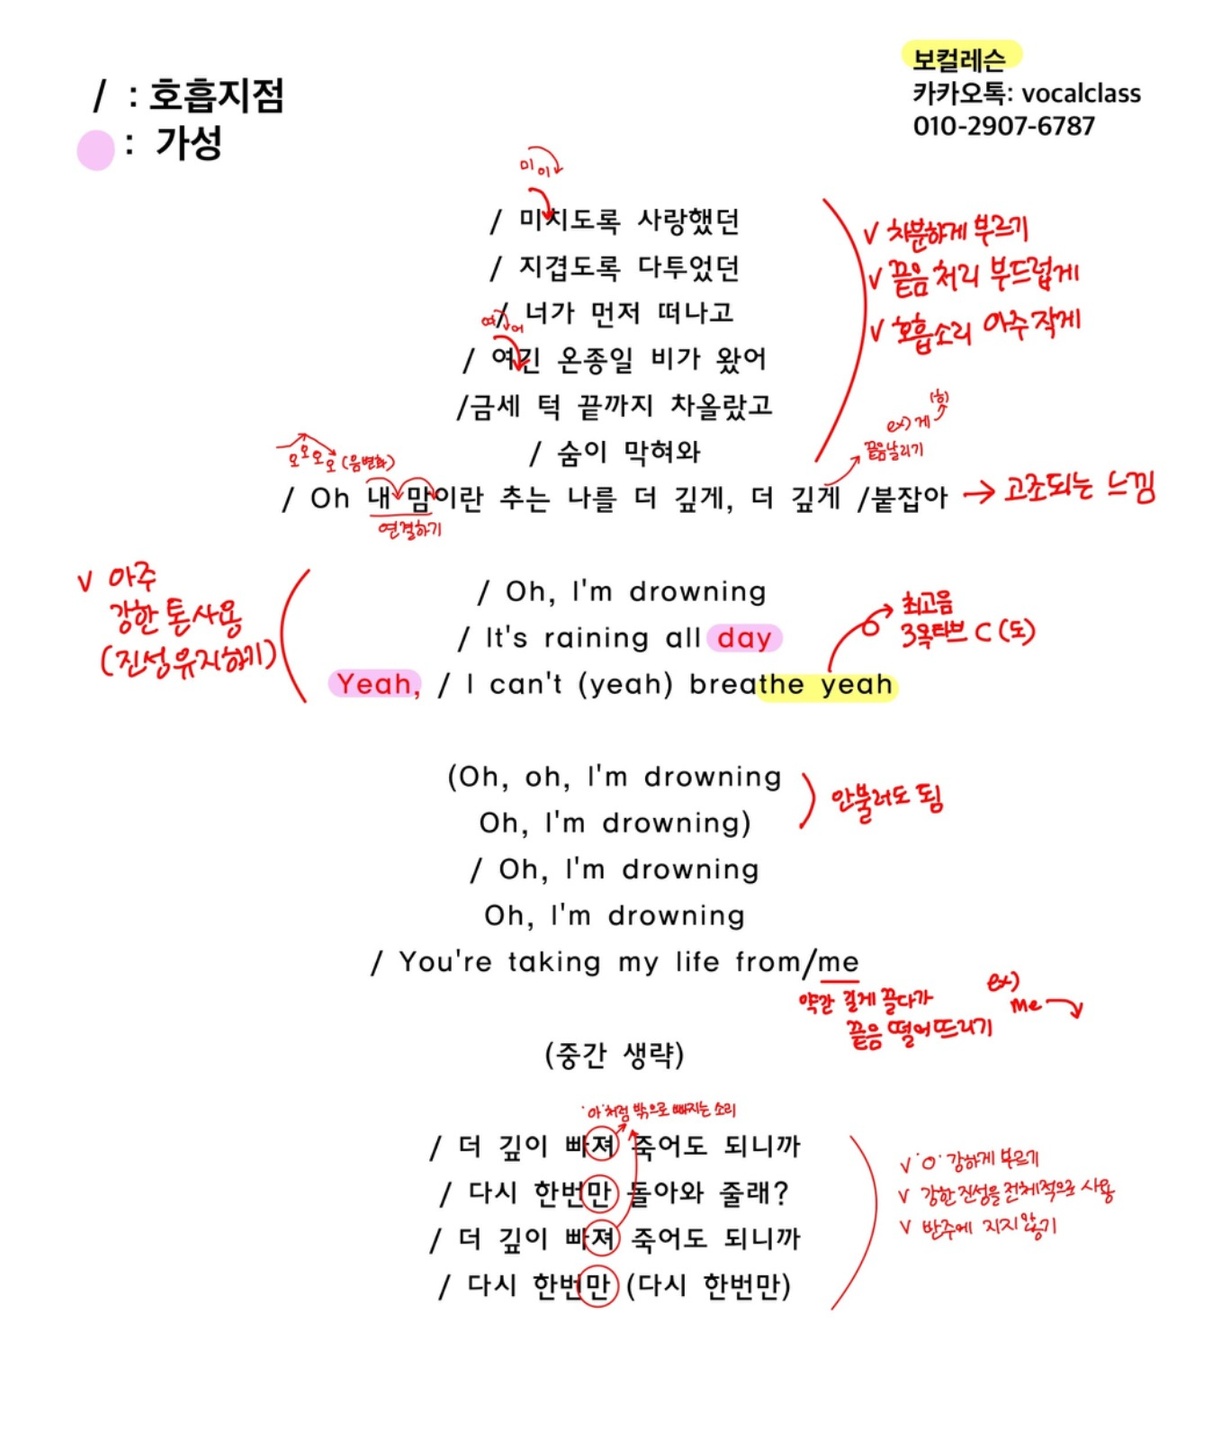 / : 호흡지점
: 가성
보컬레슨
카카오톡: vocalclass
010-2907-6787
미 이
/ 미치도록 사랑했던
/ 지겹도록 다투었던
/ 너가 먼저 떠나고
여 어
/ 여긴 온종일 비가 왔어
/금세 턱 끝까지 차올랐고
/ 숨이 막혀와
∨ 차분하게 부르기
∨ 끝음 처리 부드럽게
∨ 호흡소리 아주 작게
오 오 오 오 (음변화)
ex) 게 (헤)
끝음날리기
/ Oh 내 맘이란 추는 나를 더 깊게, 더 깊게 /붙잡아 → 고조되는 느낌
연결하기
∨ 아주
강한 톤 사용
(진성유지하기)
/ Oh, I'm drowning
/ It's raining all day
Yeah, / I can't (yeah) breathe yeah
최고음
3옥타브 C (도)
(Oh, oh, I'm drowning
Oh, I'm drowning)
안불러도 됨
/ Oh, I'm drowning
Oh, I'm drowning
/ You're taking my life from/me
약간 길게 끌다가
끝음 떨어뜨리기
ex)
me
(중간 생략)
'아'처럼 밖으로 빠지는 소리
/ 더 깊이 빠져 죽어도 되니까
/ 다시 한번만 돌아와 줄래?
/ 더 깊이 빠져 죽어도 되니까
/ 다시 한번만 (다시 한번만)
∨ 'ㅇ' 강하게 부르기
∨ 강한 진성을 전체적으로 사용
∨ 반주에 지지 않기